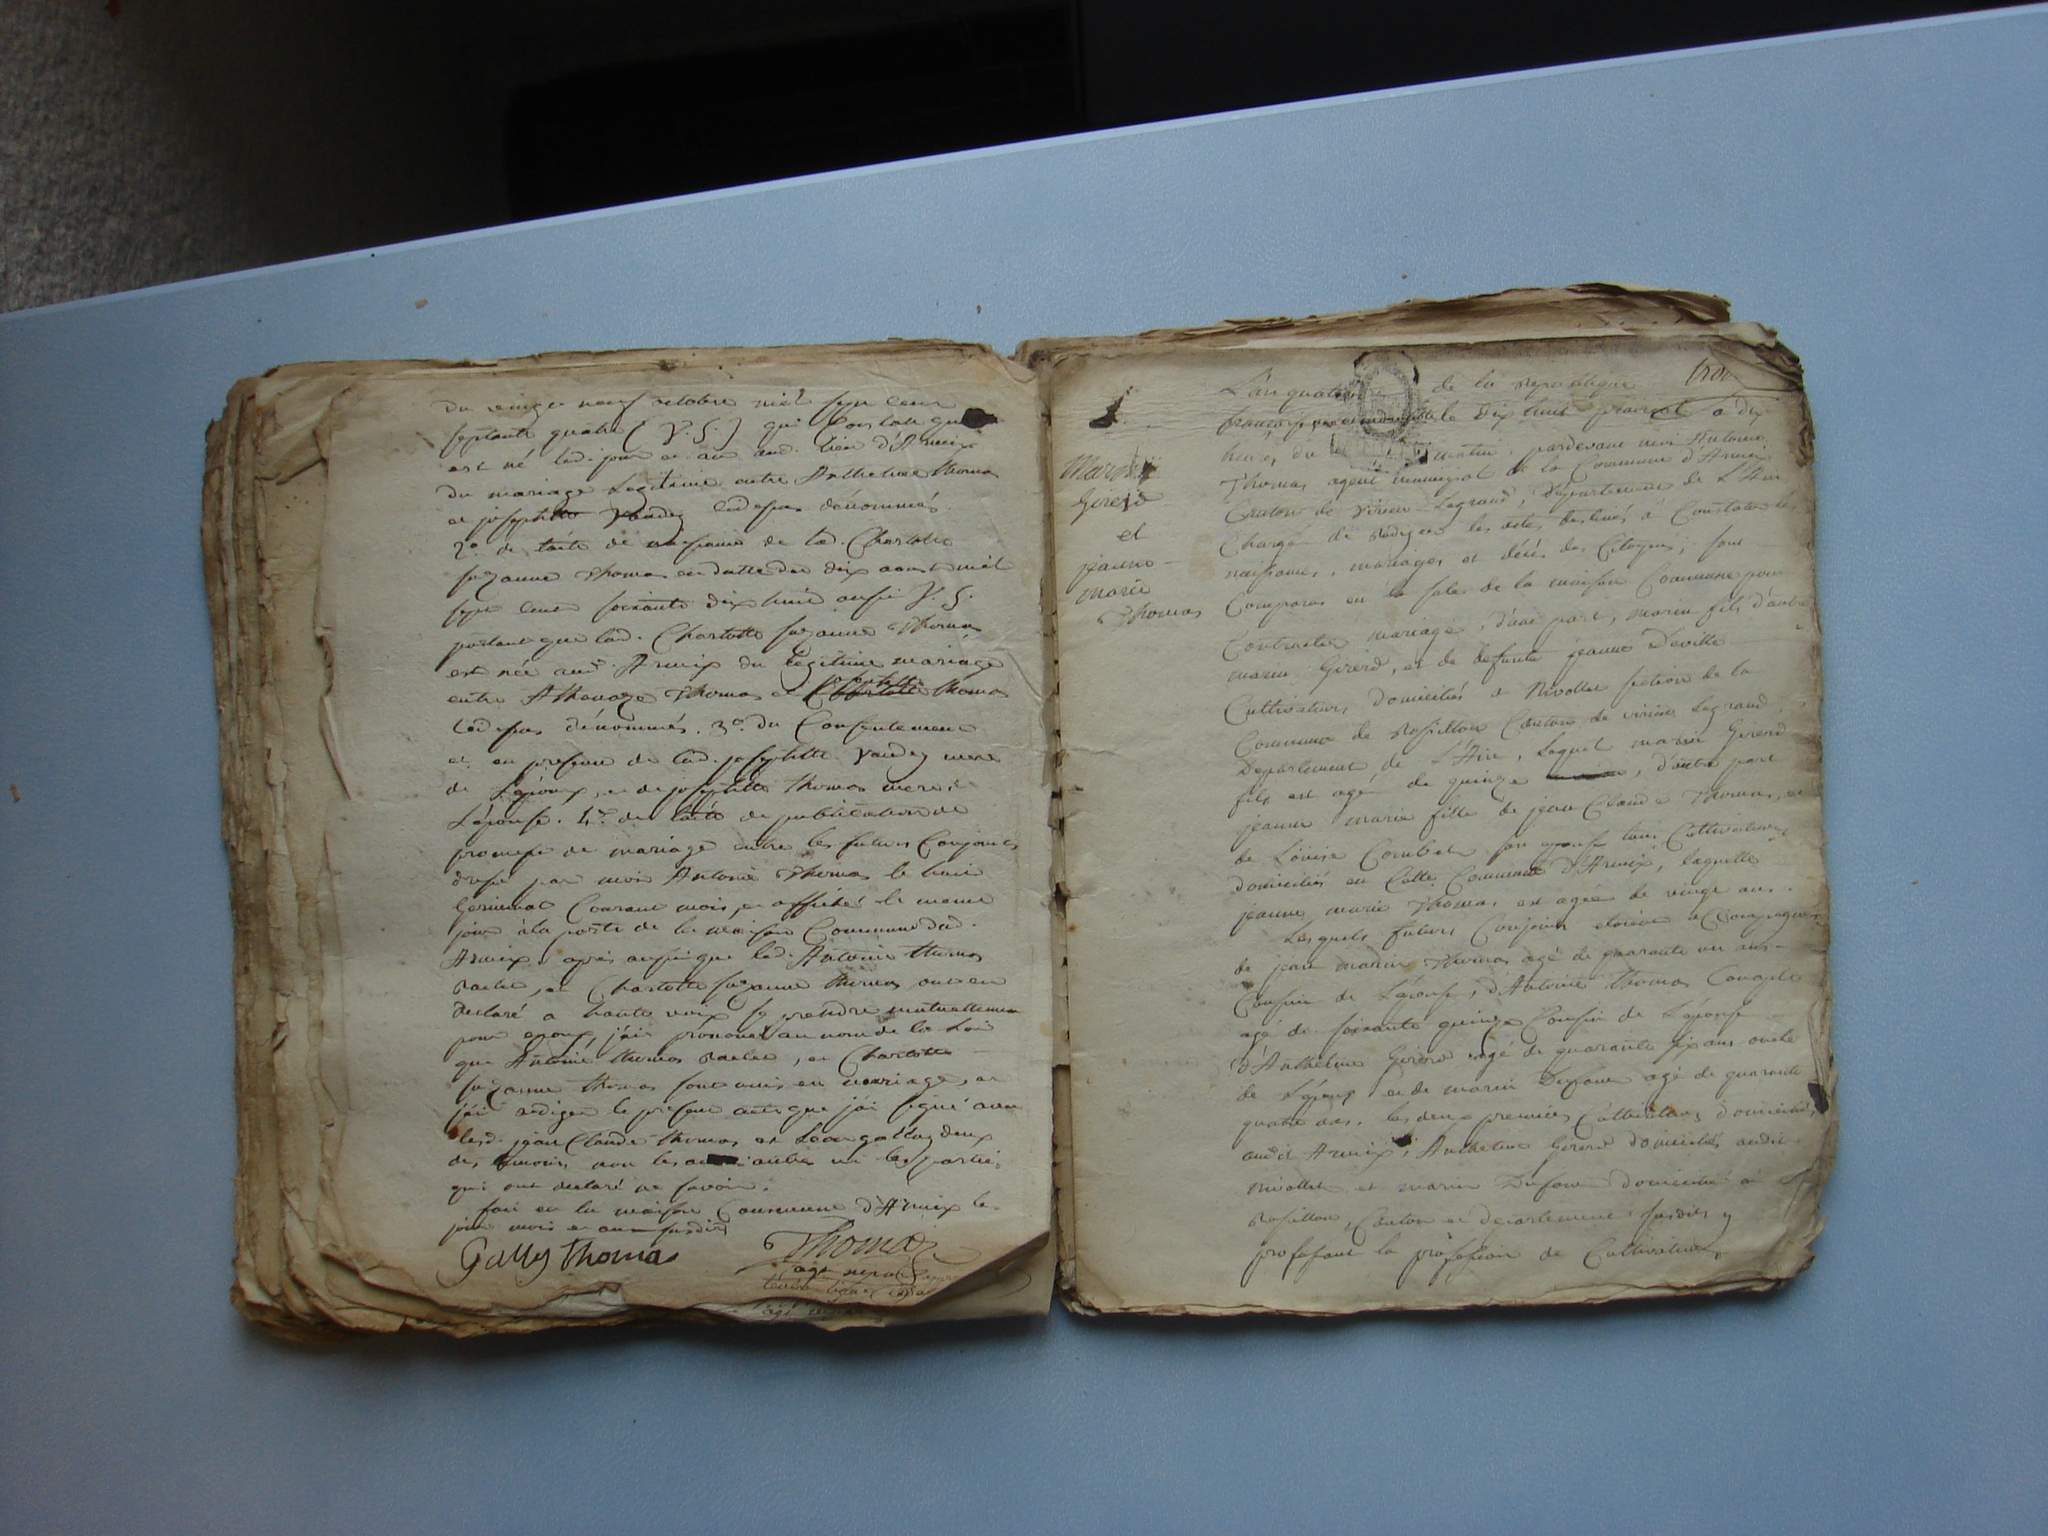 du vingt neuf octobre mil sept cent
septante quatre (V. S.) qui constate que
est né led. jour et an aud. lieu d'Armix
du mariage Legitime entre Anthelme Thomas
et josephtte Vaudez cidessus dénommés.
2º. de lacte de naissance de lad. Charlotte
suzanne Thomas en datte du dix aoust mil
sept cent soixante dix huit aussi V. S.
portant que lad. Charlotte suzanne Thomas
est née aud. Armix du legitime mariage
entre Athanaze Thomas et josephtte Thomas
cidessus dénommés. 3º. du Consentement
et en presence de lad. josephtte Vaudez mere
de L'époux, et de josephtte Thomas mere de
L'épouse. 4º. de lacte de publication de
promesse de mariage entre les futurs Conjoints
dressé par moi Antoine Thomas le huit
Germinal Courant mois, et affiché le meme
jour à la porte de la maison Commune dud.
Armix, après aussi que led. Antoine Thomas
et Charlotte suzanne Thomas ont
declaré a haute voix se prendre mutuellement
pour epoux, j'ai prononcé au nom de la Loi
que Antoine Thomas, et Charlotte
suzanne Thomas sont unis en mariage, et
j'ai redigé le present acte que j'ai signé avec
lesd. jean Claude Thomas et deux
des temoins, non les autres ni les parties
qui ont declaré ne savoir.
fait en la maison Commune d'Armix les
jour mois et an susdits
Gally Thomas Thomas
agt
L'an quatrieme de la Republique
française le dix huit prairial a dix
heures du matin, pardevant moi Antoine
Thomas agent municipal de la Commune d'Armix
Canton de Virieu Legrand, Département de L'Ain
Chargé de rédiger les actes destinés à Constater les
naissances, mariages et décès des Citoyens, sont
Comparus en la sale de la maison Commune pour
Contracter mariage, d'une part, marin fils d'autre
marin Girerd, et de defunte jeanne Deville
Cultivateurs domiciliés a Nivollet section de la
Commune de Rossillon Canton de virieu Legrand,
Departement de L'Ain, Lequel marin Girerd
fils est agé de quinze, d'autre part
jeanne marie fille de jean Claude Thomas, et
de Louise Combet son epouse tous Cultivateurs
domiciliés en Cette Commune d'Armix, laquelle
jeanne marie Thomas est agée de vingt ans.
Lesquels futurs Conjoints etoient accompagnés
de jean marin Thomas agé de quarante un ans
Cousin de L'épouse, d'Antoine Thomas
agé de soixante quinze Cousin de L'épouse
d'Anthelme Girerd agé de quarante six ans oncle
de L'époux et de marin Dufour agé de quarante
quatre ans, les deux premiers Cultivateurs domiciliés
audit Armix, Anthelme Girerd domicilié audit
Nivollet et marin Dufour domicilié à
Rossillon, Canton et departement susdits y
professant la profession de Cultivateurs,
Marin
Girerd
et
jeanne
marie
Thomas